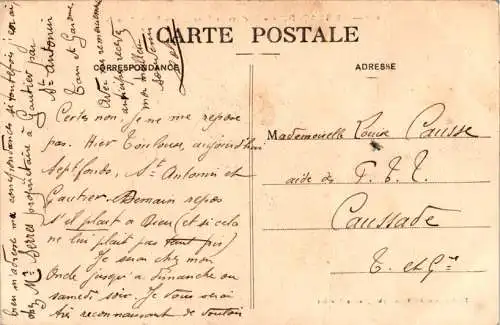 CARTE POSTALE
CORRESPONDANCE
ADRESSE
Certe non, je ne me repose
pas. Hier Toulouse, aujourd'hui
Septfonds, St Antonin et
Gautier. Demain repos
s'il plait a Dieu (et si cela
ne lui plait pas tant pis)
Je suis chez mon
Oncle jusqu'a dimanche ou
samedi soir. Je vous serai
très reconnaissant de vouloir
bien m'adresser ma correspondance
chez Mr Serres propriétaire à Gautier par
St Antonin
Tarn et Garonne
Avec
mon meilleur
souvenir
Mademoiselle Louise Causse
aide des P.T.T.
Caussade
T. et Gne